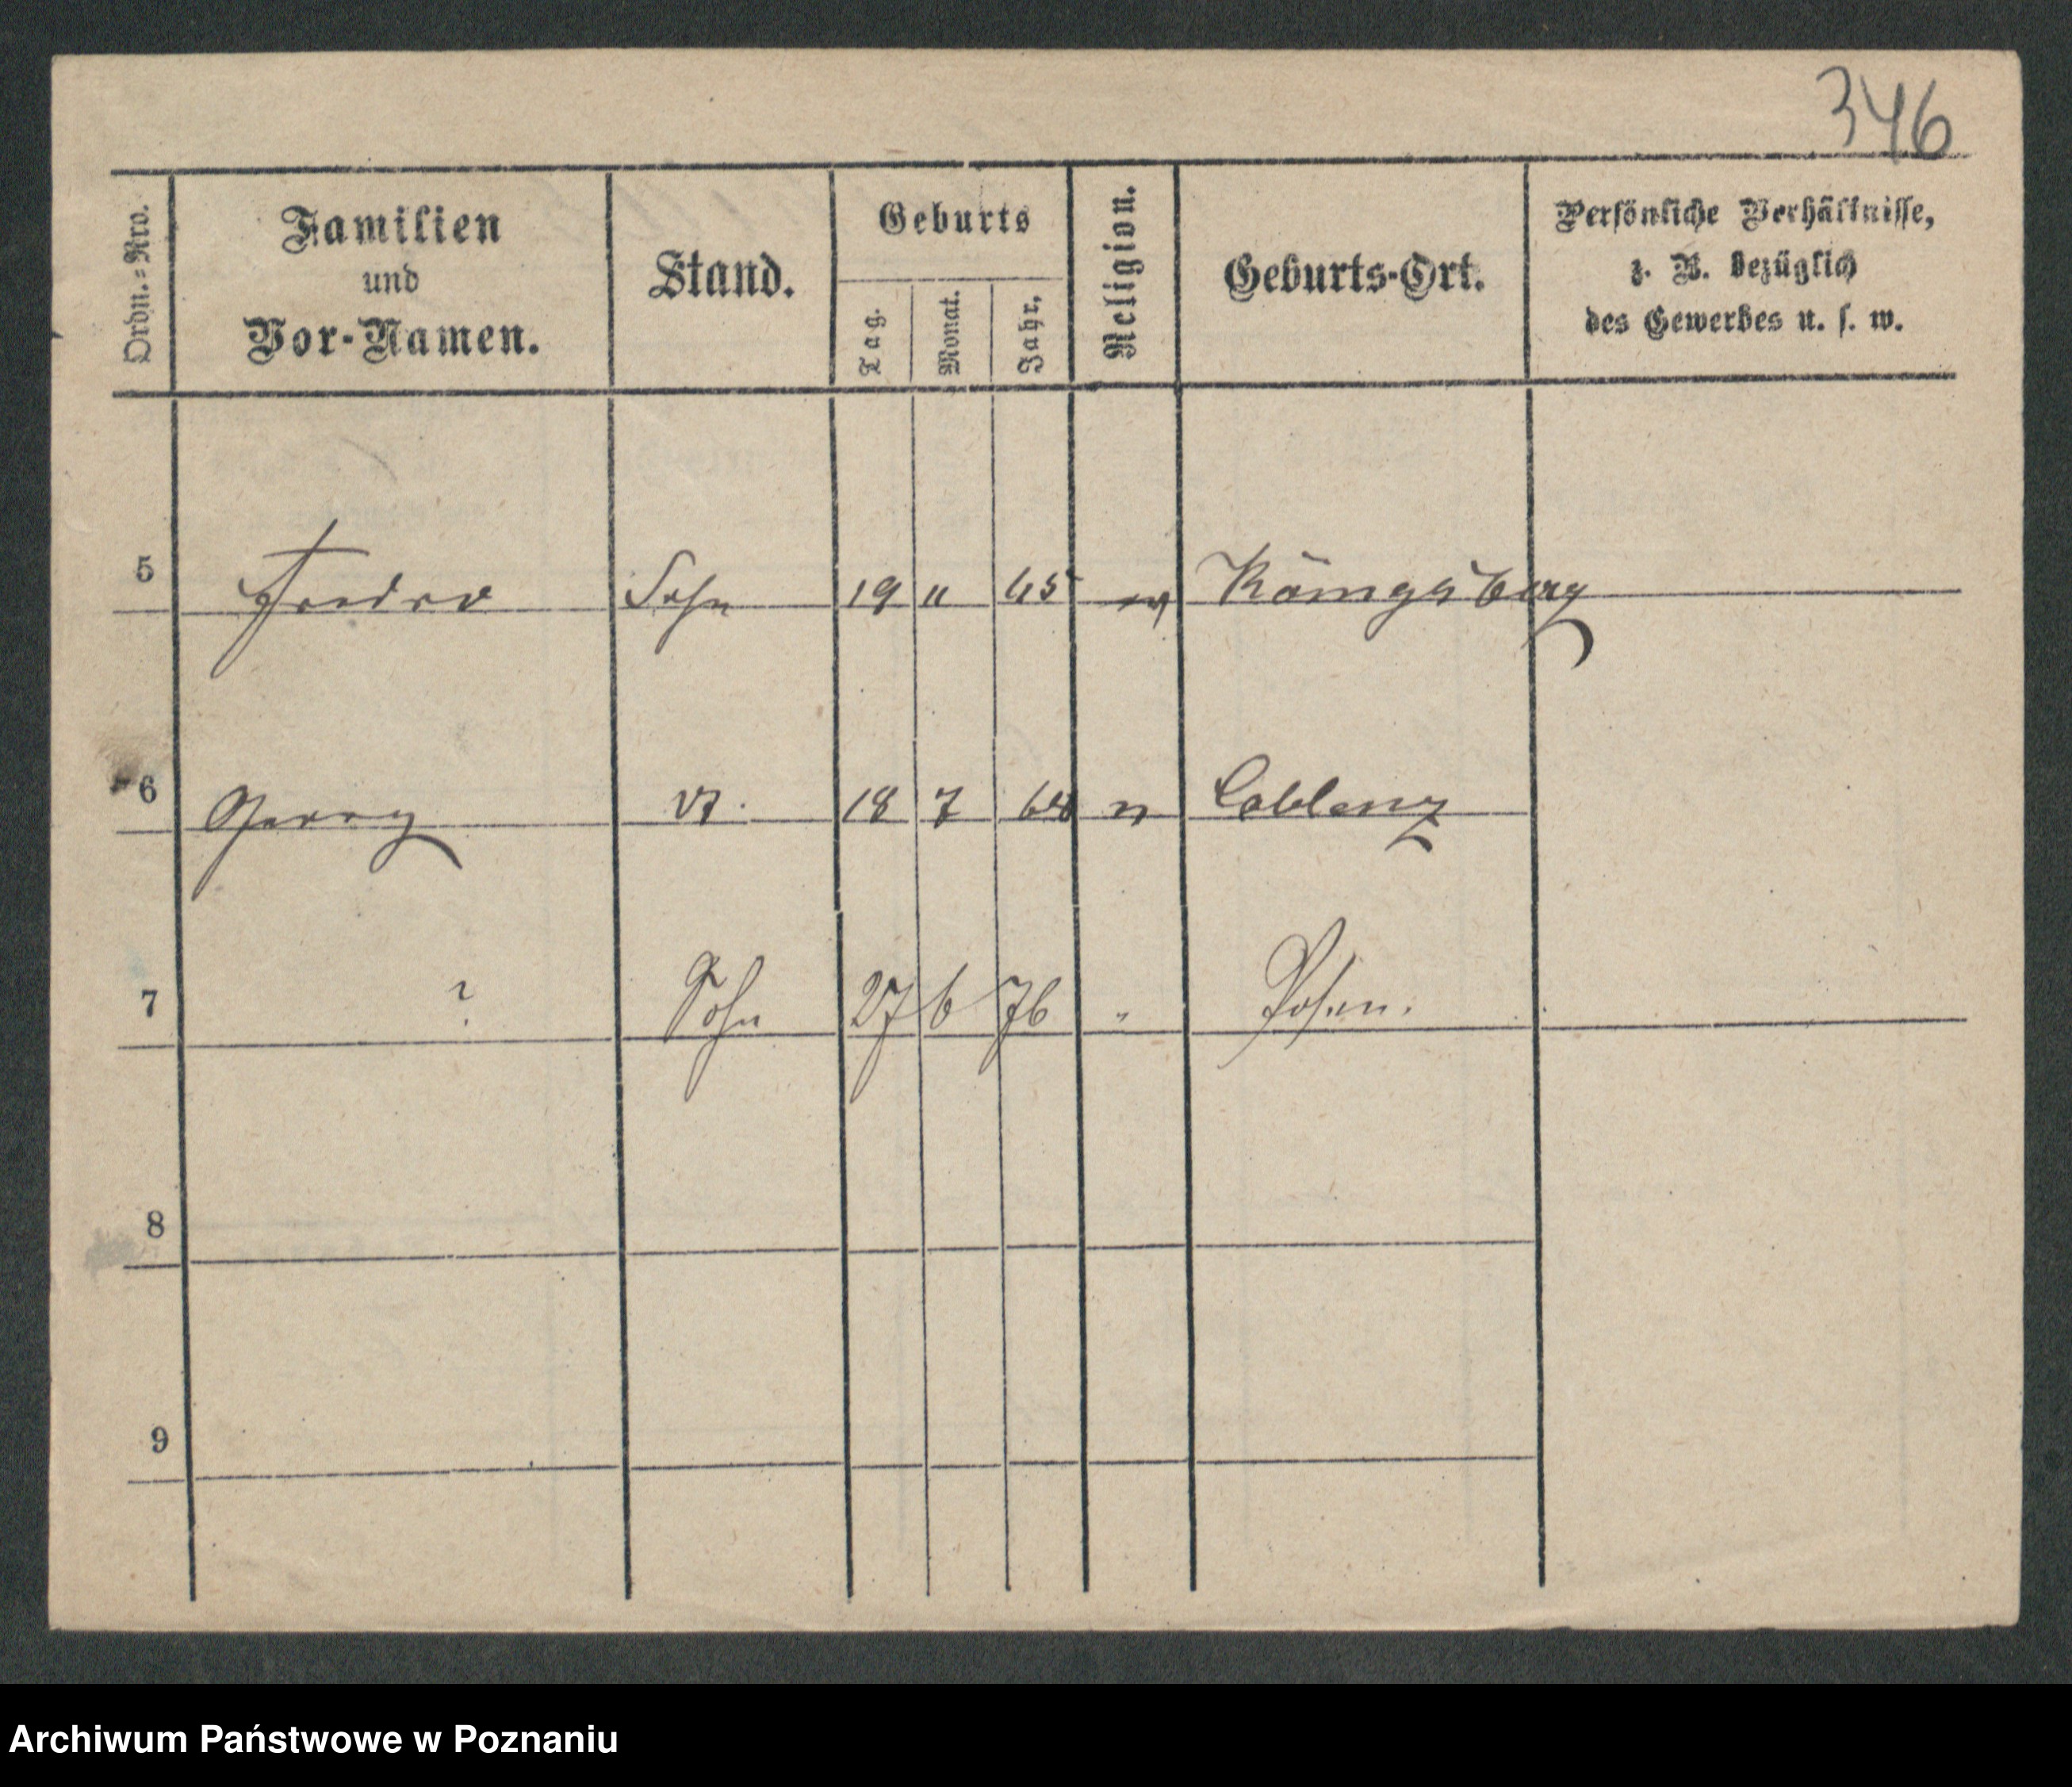 346
Ordn.=Nro.
Familien
und
Vor-Namen.
Stand.
Geburts
Tag.
Monat.
Jahr.
Religion.
Geburts-Ort.
Persönliche Verhältnisse,
z. B. bezüglich
des Gewerbes u. s. w.
5 Sohn 19 11 65 Königsberg
6 Georg 18 7 68 Coblenz
7 ? Sohn 27 6 76 " Posen.
8
9
Archiwum Państwowe w Poznaniu